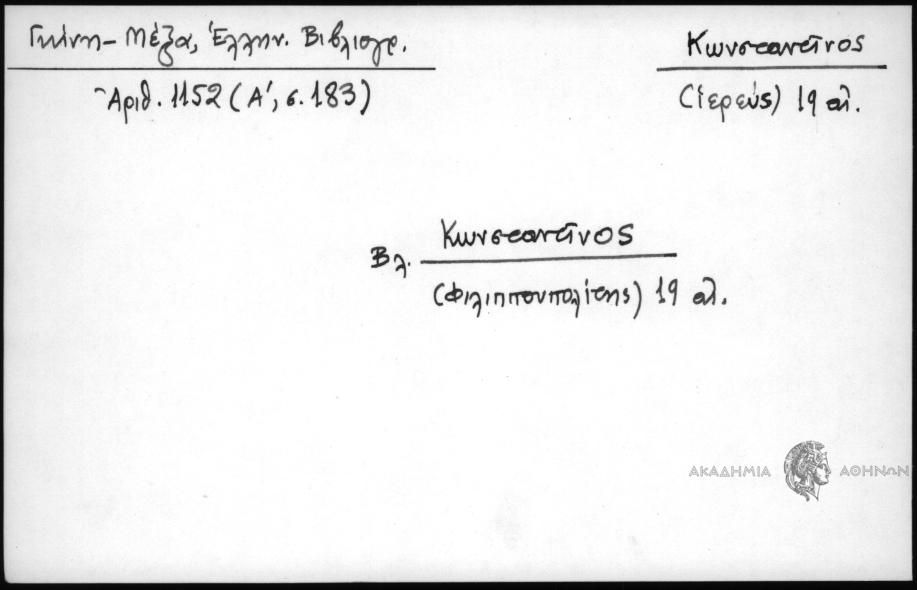 Γκίνη - Μέξα, Ἑλλην. Βιβλιογρ.
Ἀριθ. 1152 (Α', σ. 183)
Κωνσταντῖνος
(ἱερεύς) 19 αἰ.
Βλ. Κωνσταντῖνος
(Φιλιππουπολίτης) 19 αἰ.
ΑΚΑΔΗΜΙΑ ΑΘΗΝΩΝ